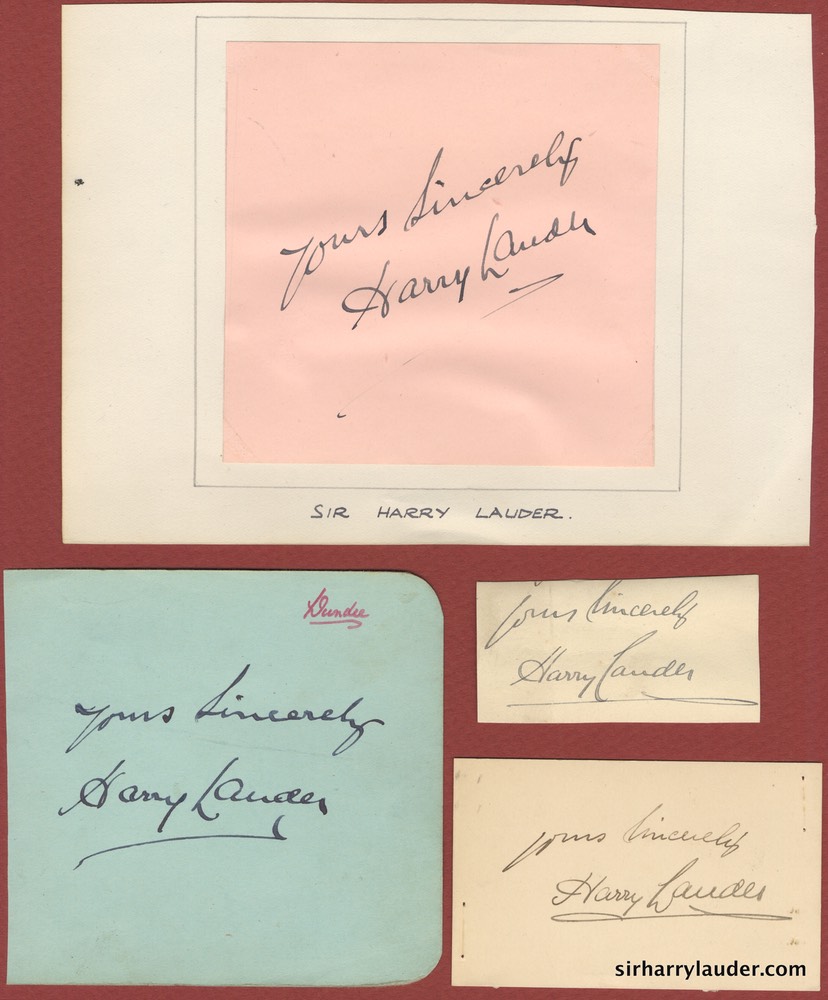 Yours Sincerely
Harry Lauder
SIR HARRY LAUDER.
Dundee
Yours Sincerely
Harry Lauder
Yours Sincerely
Harry Lauder
Yours Sincerely
Harry Lauder
sirharrylauder.com